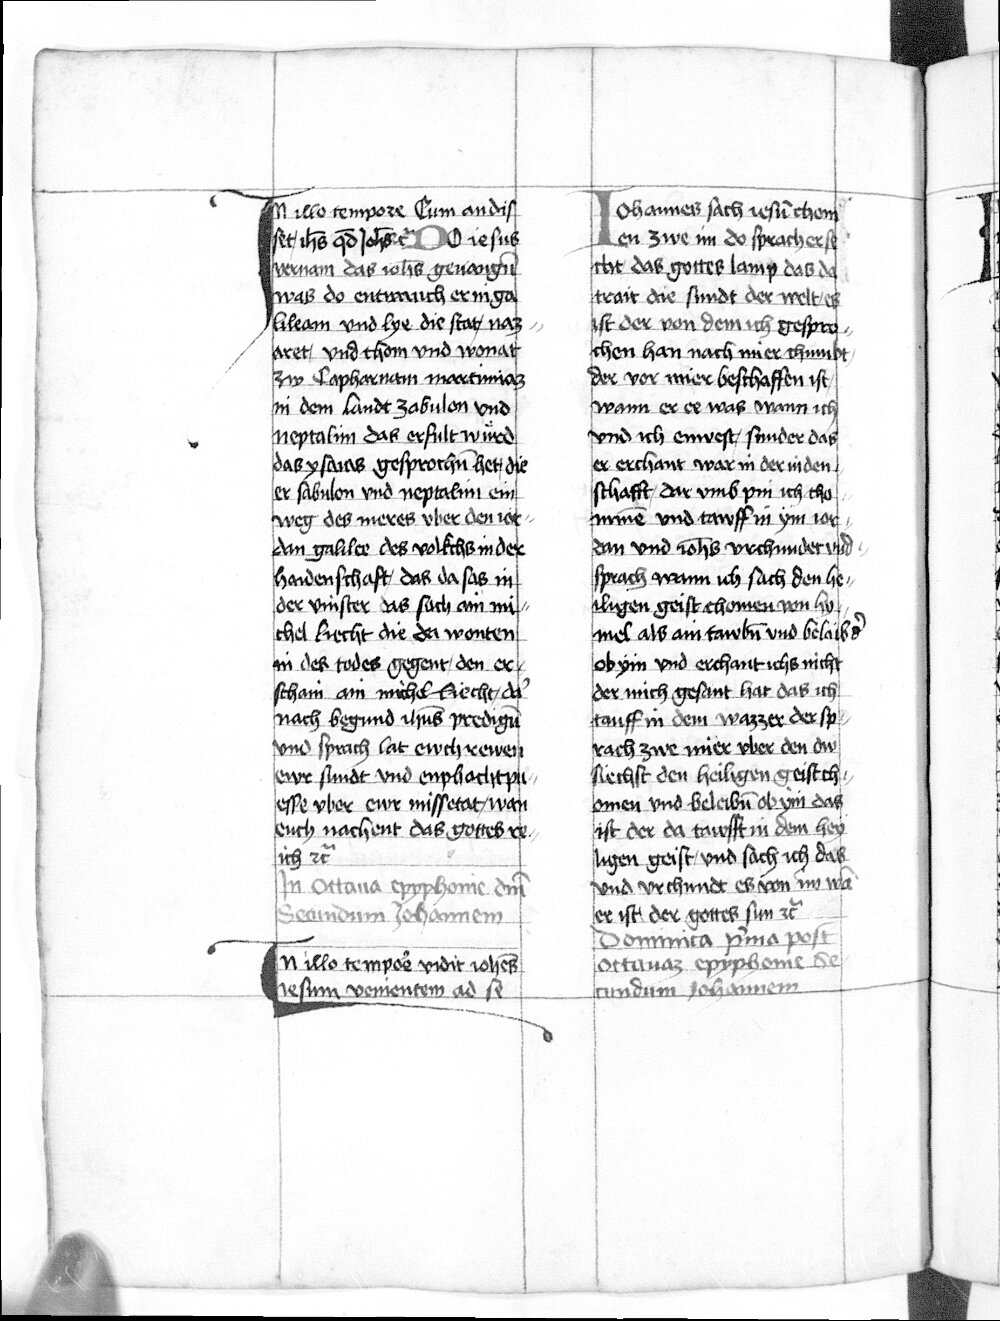 In illo tempore Cum audis
set ih̄s qd̄ Joh̄s ⁊c̄ DO iesus
vernam das ioh̄s gevangn̄
was do entwaich er in ga
lileam vnd lye die stat naz〃
aret/ vnd chom vnd wonat
zw Capharnam maritimaz
in dem landt zabulon vnd
neptalim das erfult wu̇rd
das ysaias gesprochn̄ het/ die
er sabulon vnd neptalim ein
weg des meres vber den ior〃
dan galilee des volkchs in der
haidenschaft/ das da sas in
der vinster das sach ain mi〃
chel liecht die da wonten
in des todes gegent/ den er〃
schain ain michel liecht/ da'
nach begund ih̄us predign̄
vnd sprach lat ewch rewen
ewr sundt vnd enphacht pu〃
esse vber ewr missetat/ wan
euch nachent das gottes re〃
ich ⁊c̄
In Octaua epyphanie dn̄i
Secundum Johannem
In illo tempoꝛe vidit ioh̄es
iesum venientem ad se
Iohannes sach iesu᷑ chom
en zwe im do sprach er se
cht das gottes lamp das da
trait die sundt der welt/ es
ist der von dem ich gespro〃
chen han nach mier chumbt/
der vor mier beschaffen ist/
wann er ee was wann ich
vnd ich enwest/ sunder das
er erchant war in der iuden
schafft/ dar vmb pin ich cho〃
mme᷑ vnd tawff in ym ior〃
dan vnd ioh̄s vrchundet vnd〃
sprach wann ich sach den he〃
iligen geist chomen von hy〃
mel als ain tawbn̄ vnd belaib d'
ob ym vnd erchant ichs nicht
der mich gesant hat das ich
tauff in dem wazzer der sp〃
rach zwe mier vber den dw
siechst den heiligen geist ch〃
omen vnd beleibn̄ ob ym das
ist der da tawfft in dem hey
ligen geist/ vnd sach ich das
vnd vrchundt es von im wā
er ist der gottes sun ⁊c̄
Dominica p'ma post
octauaz epyphanie Se
cundum Johannem